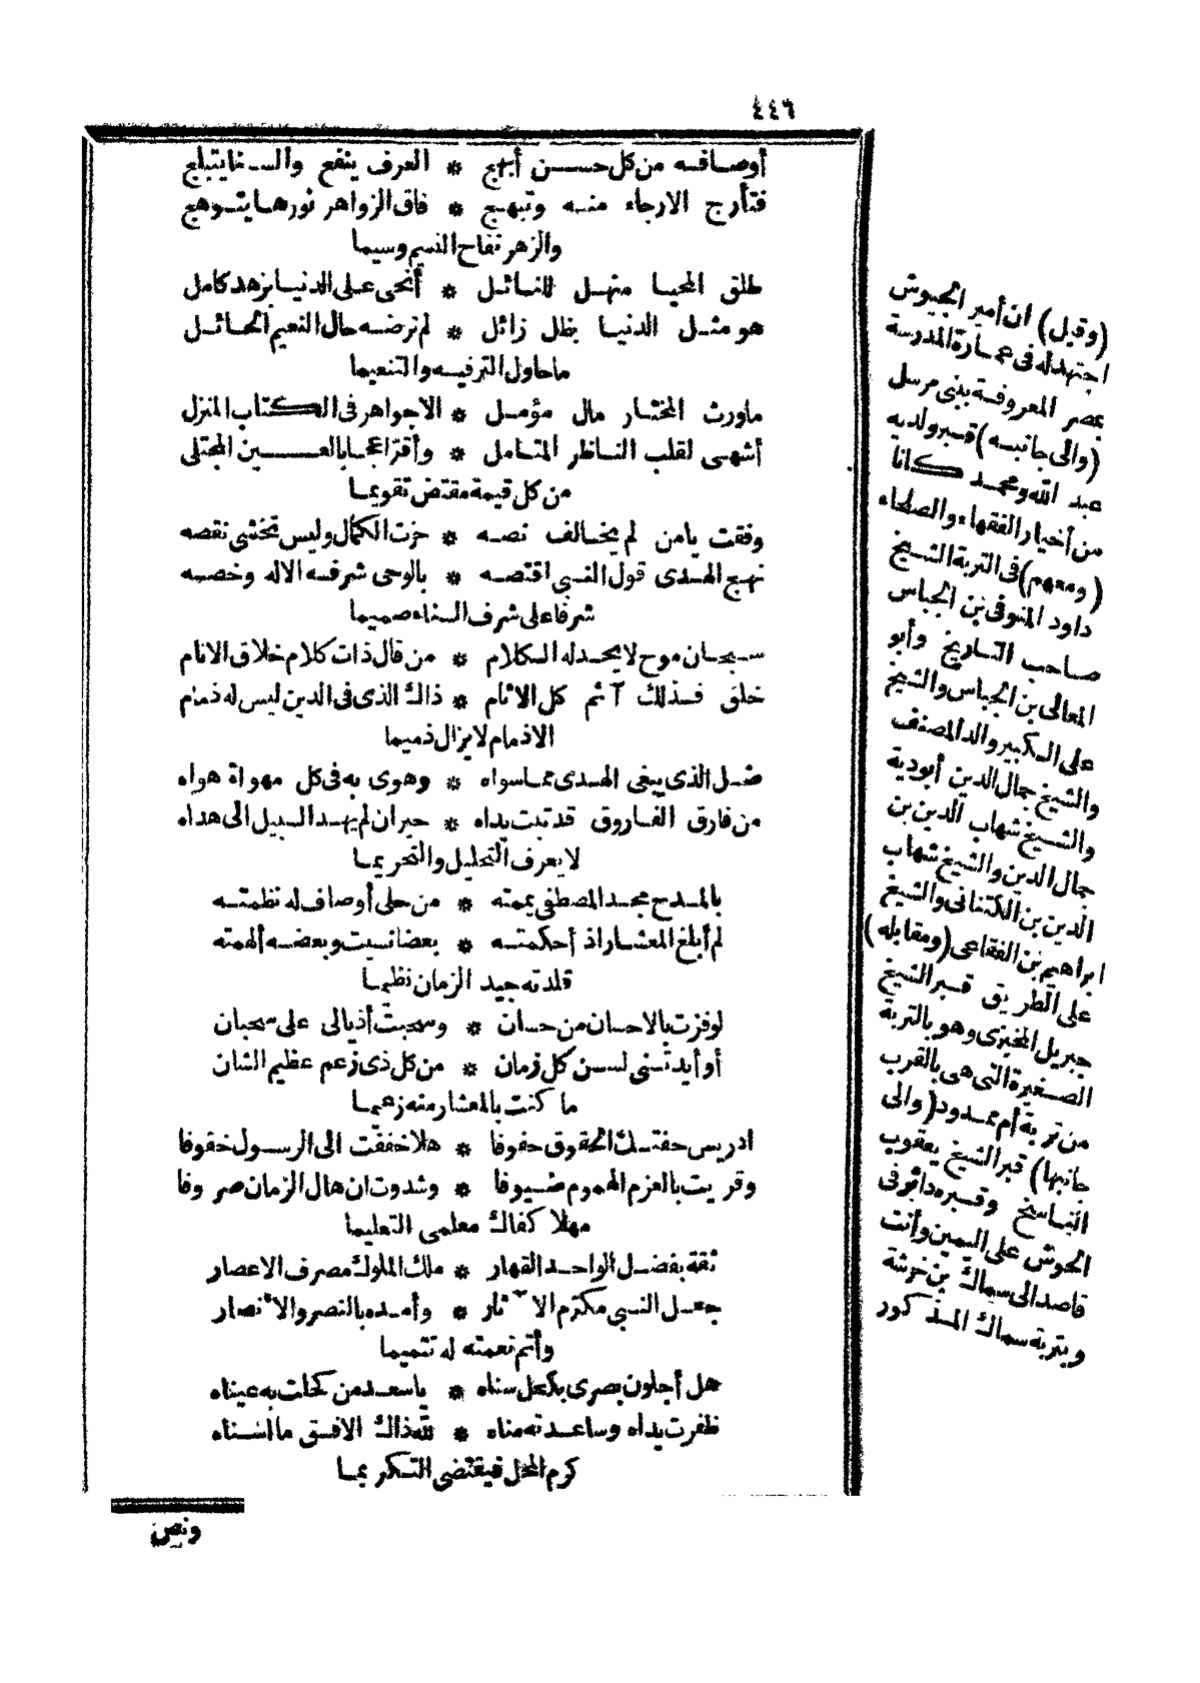 ٤٤٦
أوصافه من كل حسن أبهج * العرف ينفح والسنا يتبلج
فتأرج الارجاء منه وتبهج * فاق الزواهر نورها يتوهج
والزهر نفاح النسيم وسيما
طلق المحيا منهل للنائل * أنحى على الدنيا بزهد كامل
هو مثل الدنيا بظل زائل * لم ترضه حال النعيم الحائل
ما حاول الترفيه والتنعيما
ماورث المختار مال مؤمل * الاجواهر فى الكتاب المنزل
أشهى لقلب الناظر المتامل * وأقر اعجابا لعين المجتلى
من كل قيمة مقتض تقويما
وفقت يامن لم يخالف نصه * حزت الكمال وليس تخشى نقصه
نهج الهدى قول النبى اقتصه * بالوحى شرفه الاله وخصه
شرفا على شرف السناء صميما
سبحان موح لا يحد له الكلام * من قال ذات كلام خلاق الانام
خلق فذلك آثم كل الاثام * ذاك الذى فى الدين ليس له ذمام
الا ذمام لا يزال ذميما
ضل الذى يبغى الهدى مما سواه * وهوى به فى كل مهواة هواه
من فارق الفاروق قد تبت يداه * حيران لم يهد السبيل الى هداه
لا يعرف التحليل والتحريما
بالمدح محمد المصطفى يممته * من حلى أوصاف له نظمته
لم أبلغ المعشار اذ أحكمته * بعضا نسيت وبعضه ألهمته
قلدته جيد الزمان نظيما
لوفزت بالاحسان من حسان * وسحبت أذيالى على سحبان
أو أيدتنى لسن كل زمان * من كل ذى زعم عظيم الشان
ما كنت بالمعشار منه زعيما
ادريس حفتك الحقوق حفوفا * هلا خففت الى الرسول خفوفا
وقريت بالعزم الهموم ضيوفا * وشدوت ان هال الزمان صروفا
مهلا كفاك معلمى التعليما
ثقة بفضل الواحد القهار * ملك الملوك مصرف الاعصار
جعل النبى مكرم الآثار * وأمده بالنصر والانصار
وأتم نعمته له تتميما
هل أجلون بصرى بكحل سناه * ياسعد من كحلت به عيناه
ظفرت يداه وساعدته مناه * لله ذاك الافق ما اسناه
كرم المحل فيقتضى التكريما
ونص
(وقيل) ان أمير الجيوش
اجتهد له فى عمارة المدرسة
بمصر المعروفة ببنى مرسل
(والى جانبه) قبر ولديه
عبد الله ومحمد كانا
من أخيار الفقهاء والصلحاء
(ومعهم) فى التربة الشيخ
داود المتوفى بن الجباس
صاحب التاريخ وأبو
المعالى بن الجباس والشيخ
على الكبير والد المصنف
والشيخ جمال الدين أبودية
والشيخ شهاب الدين بن
جمال الدين والشيخ شهاب
الدين بن الكتنانى والشيخ
ابراهيم بن الفقاعى (ومقابله)
على الطريق قبر الشيخ
جبريل المخبزى وهو بالتربة
الصغيرة التى هى بالقرب
من تربة أم ممدود (والى
جانبها) قبر الشيخ يعقوب
الناسخ وقبره داثر فى
الحوش على اليمين وأنت
قاصد الى سماك بن خرشة
وبتربة سماك المذكور